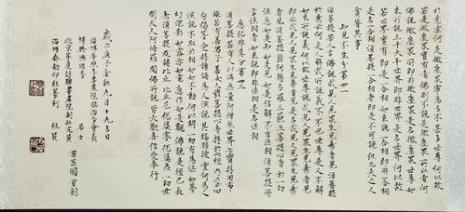 於意云何是微塵眾寧為多不甚多世尊何以故
若是微塵眾實有者佛則不說是微塵眾所以者何
佛說微塵眾則非微塵眾是名微塵眾世尊如
來所說三千大千世界則非世界是名世界何以故
若世界實有者則是一合相如來說一合相則非一合相
是名一合相須菩提一合相者則是不可說但凡夫之人
貪著其事
知見不生分第卅一
須菩提若人言佛說我見人見眾生見壽者見須菩提
於意云何是人解我所說義不不也世尊是人不解
如來所說義何以故世尊說我見人見眾生見壽者見
即非我見人見眾生見壽者見是名我見人見眾生見壽者
見須菩提發阿耨多羅三藐三菩提心者於一切
法應如是知如是見如是信解不生法相須菩提所
言法相者如來說即非法相是名法相
應化非真分第卅二
須菩提若有人以滿無量阿僧祇世界七寶持用布
施若有善男子善女人發菩提心者持於此經乃至四
句偈等受持讀誦為人演說其福勝彼云何為人
演說不取於相如如不動何以故一切有為法如夢
幻泡影如露亦如電應作如是觀佛說是經已長
老須菩提及諸比丘比丘尼優婆塞優婆夷一切世
間天人阿修羅聞佛所說皆大歡喜信受奉行
歲次庚子
九月十九日